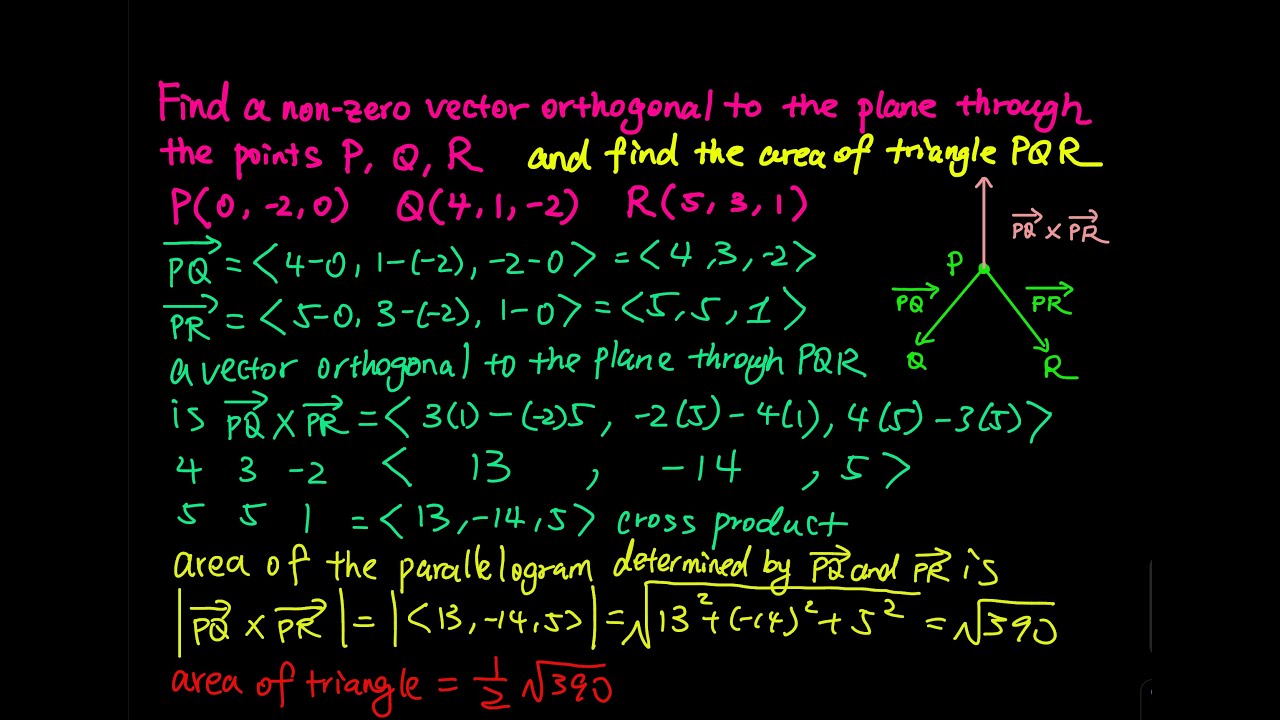 Find a non-zero vector orthogonal to the plane through
the points P, Q, R and find the area of triangle PQR
P(0, -2, 0) Q(4, 1, -2) R(5, 3, 1)
PQ × PR
PQ = <4-0, 1-(-2), -2-0> = <4, 3, -2>
P
PR = <5-0, 3-(-2), 1-0> = <5, 5, 1>
PQ PR
Q R
a vector orthogonal to the plane through PQR
is PQ × PR = <3(1) - (-2)5, -2(5) - 4(1), 4(5) - 3(5)>
4 3 -2 < 13 , -14 , 5 >
5 5 1 = <13, -14, 5> cross product
area of the parallelogram determined by PQ and PR is
|PQ × PR| = |<13, -14, 5>| = √13² + (-14)² + 5² = √390
area of triangle = 1/2 √390